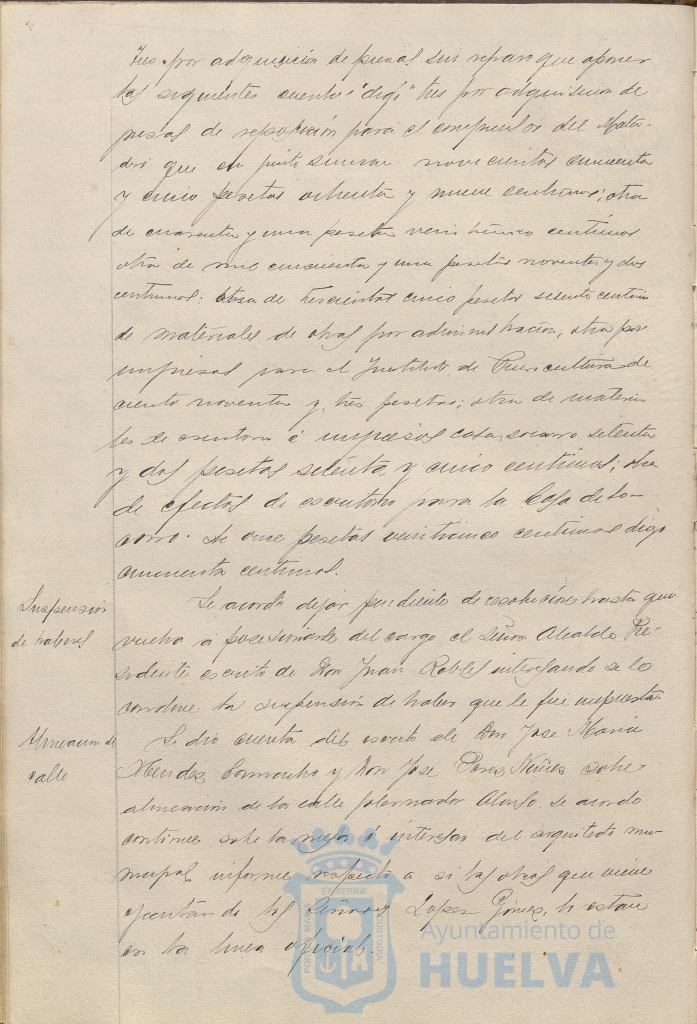 tres por adquisición de piezas sin reparo que oponer
las siguientes cuentas "digo" tres por adquisicion de
piezas de reposición para el compresor del Mata-
dero que en junto suman novecientas cincuenta
y cinco pesetas ochenta y nueve centimos; otra
de cuarenta y una pesetas veinticinco centimos
otra de mil cincuenta y una pesetas noventa y dos
centimos: otra de trescientas cinco pesetas setenta centimos
de materiales de obras por administracion, otra por
impresos para el Instituto de Puericultura de
ciento noventa y tres pesetas; otra de materia
les de escritorio é impresos casa socorro setenta
y dos pesetas setenta y cinco centimos; otra
de efectos de escritorio para la Casa de So-
corro. de once pesetas veinticinco centimos digo
cincuenta centimos.
Suspensión
de haberes
Se acordó dejar pendiente de resolucion hasta que
vuelva a posesionarse del cargo el Señor Alcalde Pre-
sidente escrito de Don Juan Robles interesando se le
condone la suspensión de haber que le fue impuesta.
Alineacion de
calle
Se dio cuenta del escrito de Don Jose Maria
Mendez Camacho y Don Jose Perez Nuñez sobre
alineación de la calle Gobernador Alonso. Se acordo
continue sobre la mesa é interesar del arquitecto mu-
nicipal informe respecto a si las obras que viene
ejecutando los Señores Lopez Gomez, lo estan
en la linea oficial.
Ayuntamiento de
HUELVA